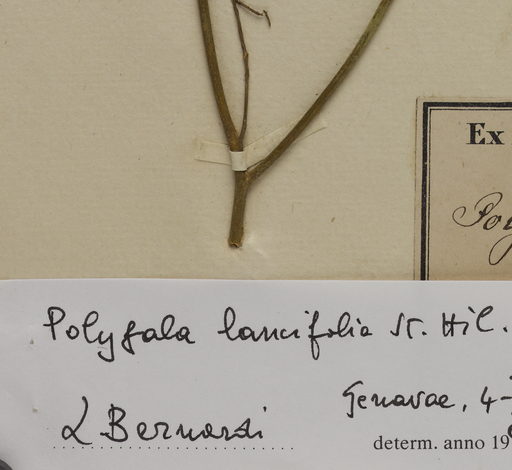 Ex
Po
Polygala lancifolia St. Hil.
Genavae, 4-
L Bernardi
determ. anno 19